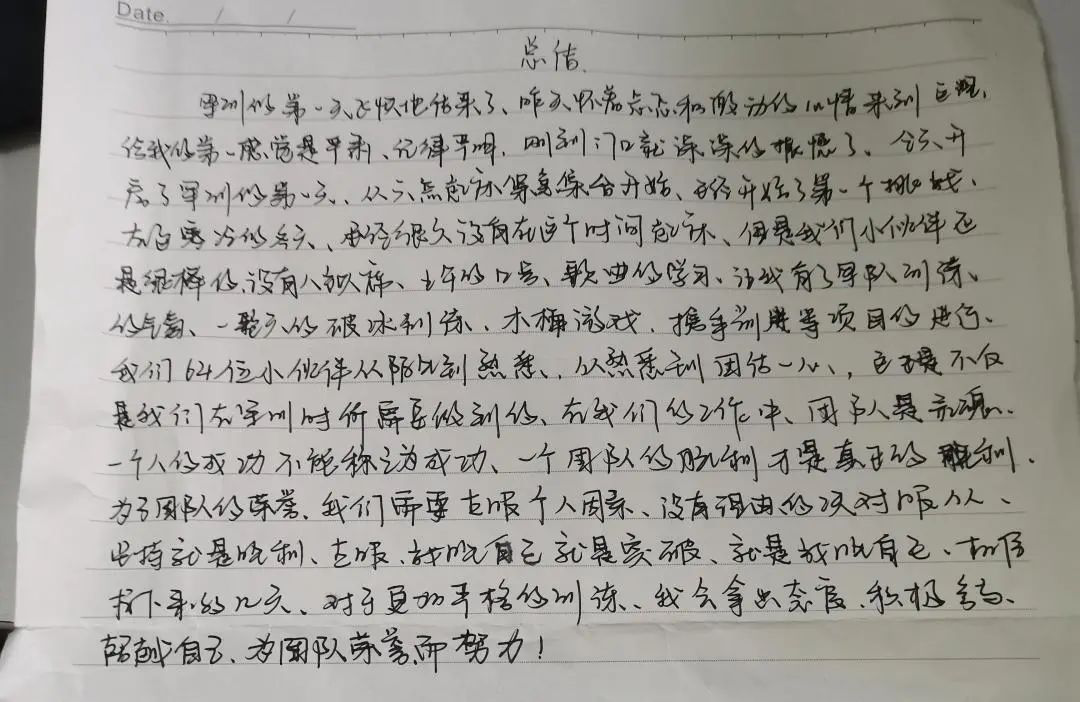 Date / /
总结.
军训的第一天飞快地结束了、昨天怀着忐忑和激动的心情来到这里,
给我的第一感觉是严肃、纪律严明,刚到门口就深深的振憾了、今天开
启了军训的第一天、从六点起床紧急集合开始、已经开始了第一个挑战、
在这寒冷的冬天、已经很久没有在这个时间起床、但是我们小伙伴还
是很棒的,没有人缺席、上午的口号、歌曲的学习、让我有了军队训练、
的气氛、一整天的破冰训练、木桶游戏,携手前进等项目的进行、
我们64位小伙伴从陌生到熟悉、从熟悉到团结一心、,这不仅
是我们在军训时所需要做到的、在我们的工作中、团队人是灵魂、
一个人的成功不能称之为成功、一个团队的胜利才是真正的胜利.
为了团队的荣誉,我们需要克服个人因素、没有理由的绝对服从、
坚持就是胜利、克服,战胜自己就是突破、就是战胜自己、相信
接下来的几天、对于更加严格的训练、我会拿出态度,积极参与、
超越自己、为团队荣誉而努力!